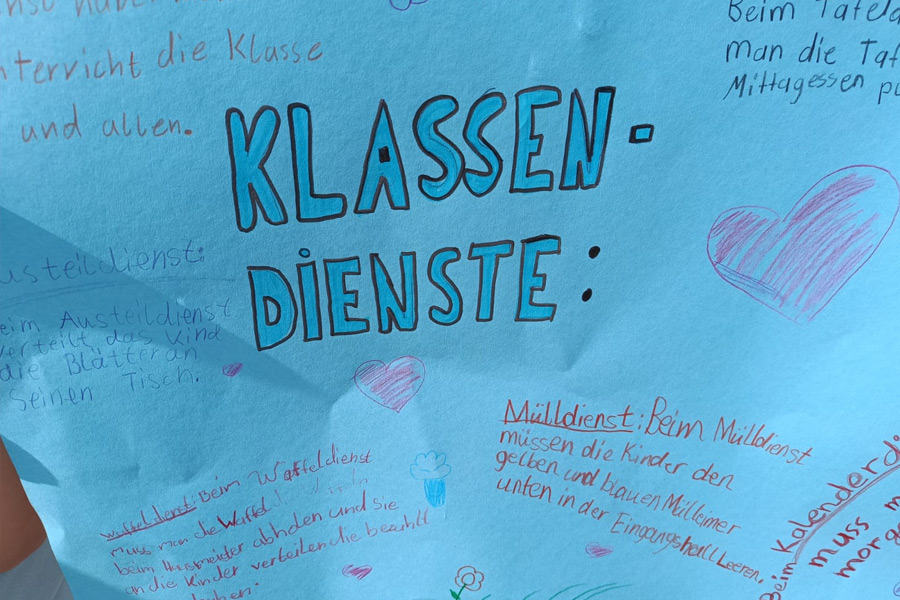 die Klasse
und allen.
Beim
man die
Mittagessen
KLASSEN-
DIENSTE:
usteildienst:
eim Austeildienst
verteilt das Kind
die Blätter an
seinen Tisch.
Mülldienst: Beim Mülldienst
müssen die Kinder den
gelben und blauen Mülleimer
unten in der Eingangshalle Leeren.
Waffeldienst: Beim Waffeldienst
muss man die Waffel
beim Hausmeister abholen und sie
an die Kinder verteilen die bezahlt
Beim Kalenderdi
muss m
morge